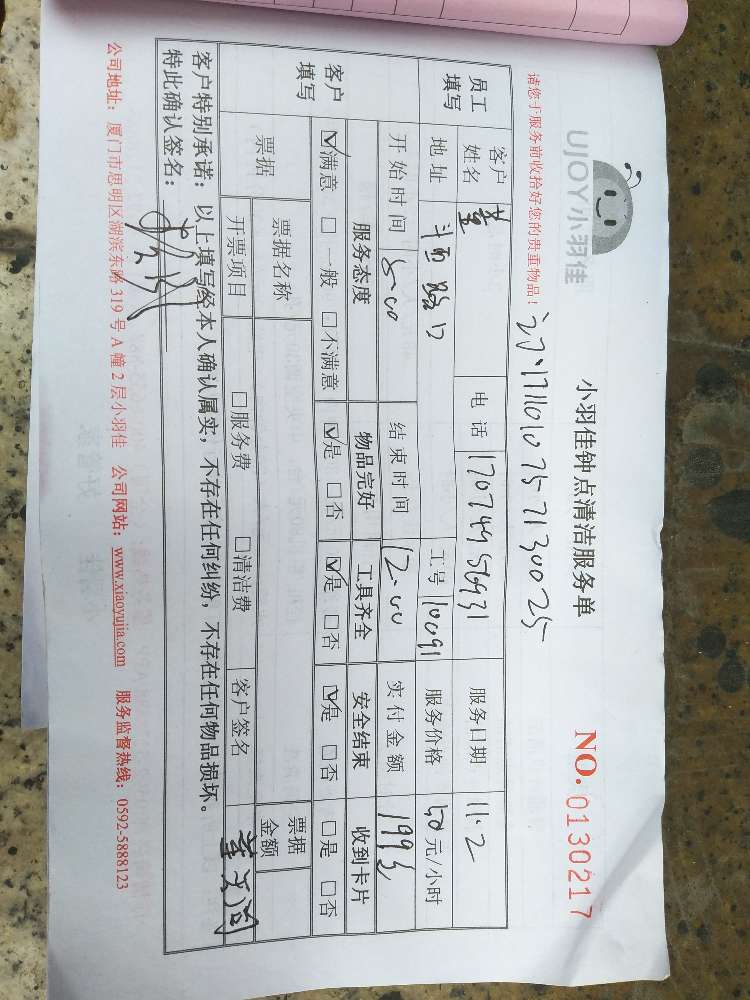 UJOY小羽佳
小羽佳钟点清洁服务单
NO. 0130217
请您于服务前收拾好您的贵重物品!
员工填写 客户姓名 董 电话 17074956931 服务日期 11.2
地址 工号 10091 服务价格 50元/小时
开始时间 8:00 结束时间 12:00 实付金额
客户填写 服务态度 物品完好 工具齐全 安全结束 收到卡片
☑满意 □一般 □不满意 ☑是 □否 ☑是 □否 ☑是 □否 □是 □否
票据 票据名称 票据金额
开票项目 □服务费 □清洁费 客户签名
客户特别承诺：以上填写经本人确认属实，不存在任何纠纷，不存在任何物品损坏。
特此确认签名：
公司地址：厦门市思明区湖滨东路319号A幢2层小羽佳 公司网站：www.xiaoyujia.com 服务监督热线：0592-5888123